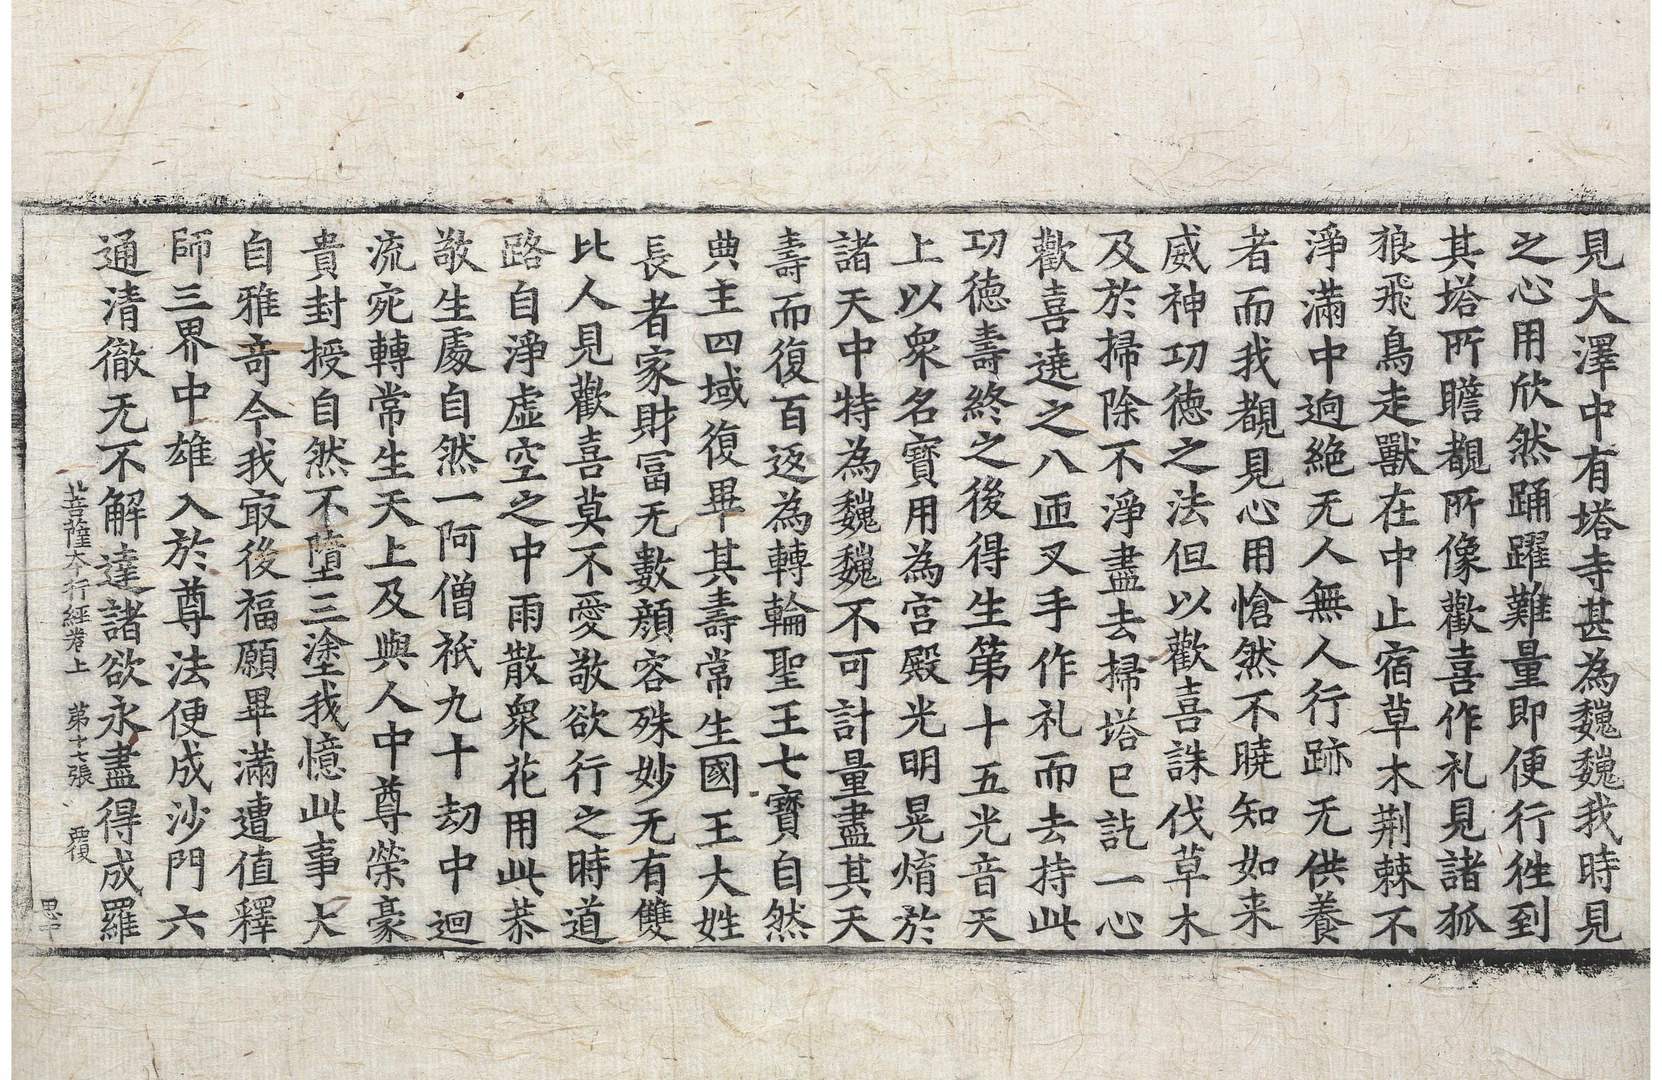 見大澤中有塔寺甚為巍巍我時見
之心用欣然踊躍難量即便行徃到
其塔所瞻覩所像歡喜作礼見諸狐
狼飛鳥走獸在中止宿草木荆棘不
淨滿中逈絶无人無人行跡无供養
者而我覩見心用愴然不曉知如来
威神功徳之法但以歡喜誅伐草木
及於掃除不淨盡去掃塔已訖一心
歡喜遶之八匝叉手作礼而去持此
功徳壽終之後得生第十五光音天
上以衆名寶用為宮殿光明晃煟於
諸天中特為巍巍不可計量盡其天
壽而復百返為轉輪聖王七寶自然
典主四域復畢其壽常生國王大姓
長者家財冨无數顔容殊妙无有雙
比人見歡喜莫不愛敬欲行之時道
路自淨虚空之中雨散衆花用此恭
敬生處自然一阿僧祇九十劫中迴
流宛轉常生天上及與人中尊榮豪
貴封授自然不墮三塗我憶此事大
自雅竒今我㝡後福願畢滿遭值釋
師三界中雄入於尊法便成沙門六
通清徹无不解達諸欲永盡得成羅
菩薩夲行經卷上　第十七張